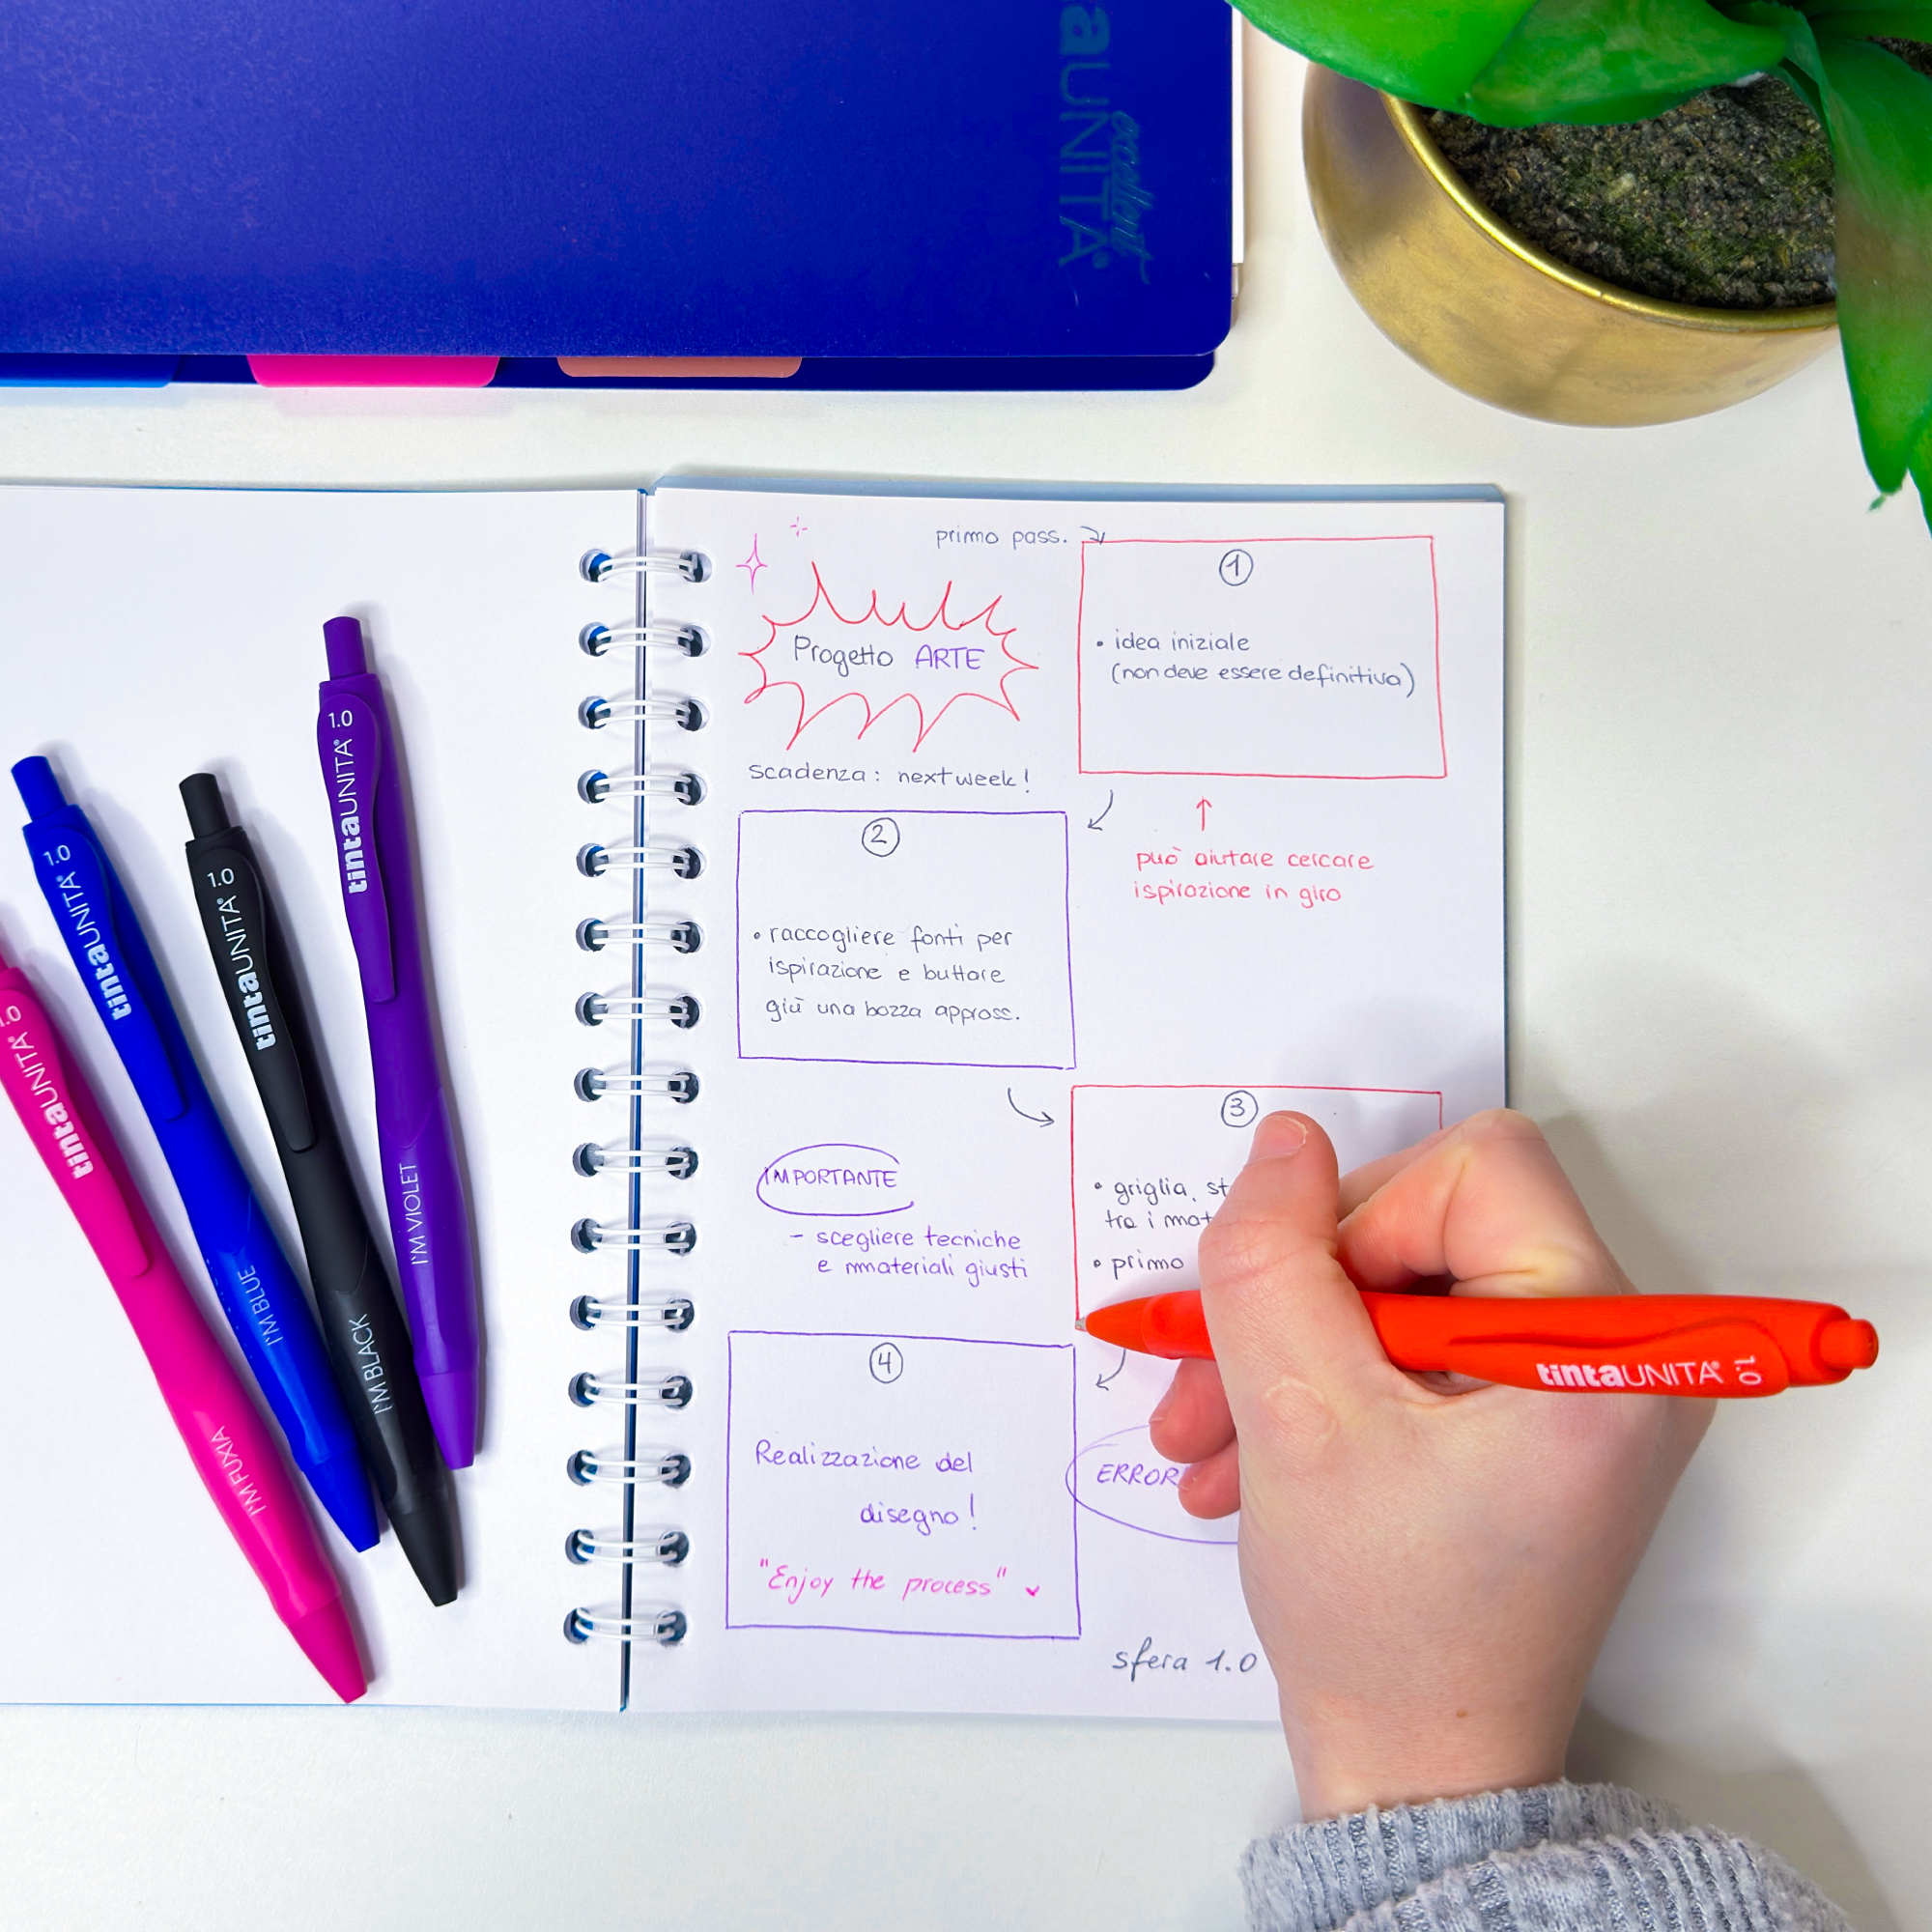 aUNITA
excellent
primo pass.
Progetto ARTE
scadenza: next week!
1
• idea iniziale
(non deve essere definitiva)
può aiutare cercare
ispirazione in giro
2
• raccogliere fonti per
ispirazione e buttare
giù una bozza appross.
3
• griglia, st
tra i mat
• primo
IMPORTANTE
- scegliere tecniche
e mmateriali giusti
4
Realizzazione del
disegno!
"Enjoy the process"
ERROR
sfera 1.0
1.0
tintaUNITA
I'M FUXIA
1.0
tintaUNITA
I'M BLUE
1.0
tintaUNITA
I'M BLACK
1.0
tintaUNITA
I'M VIOLET
tintaUNITA 1.0